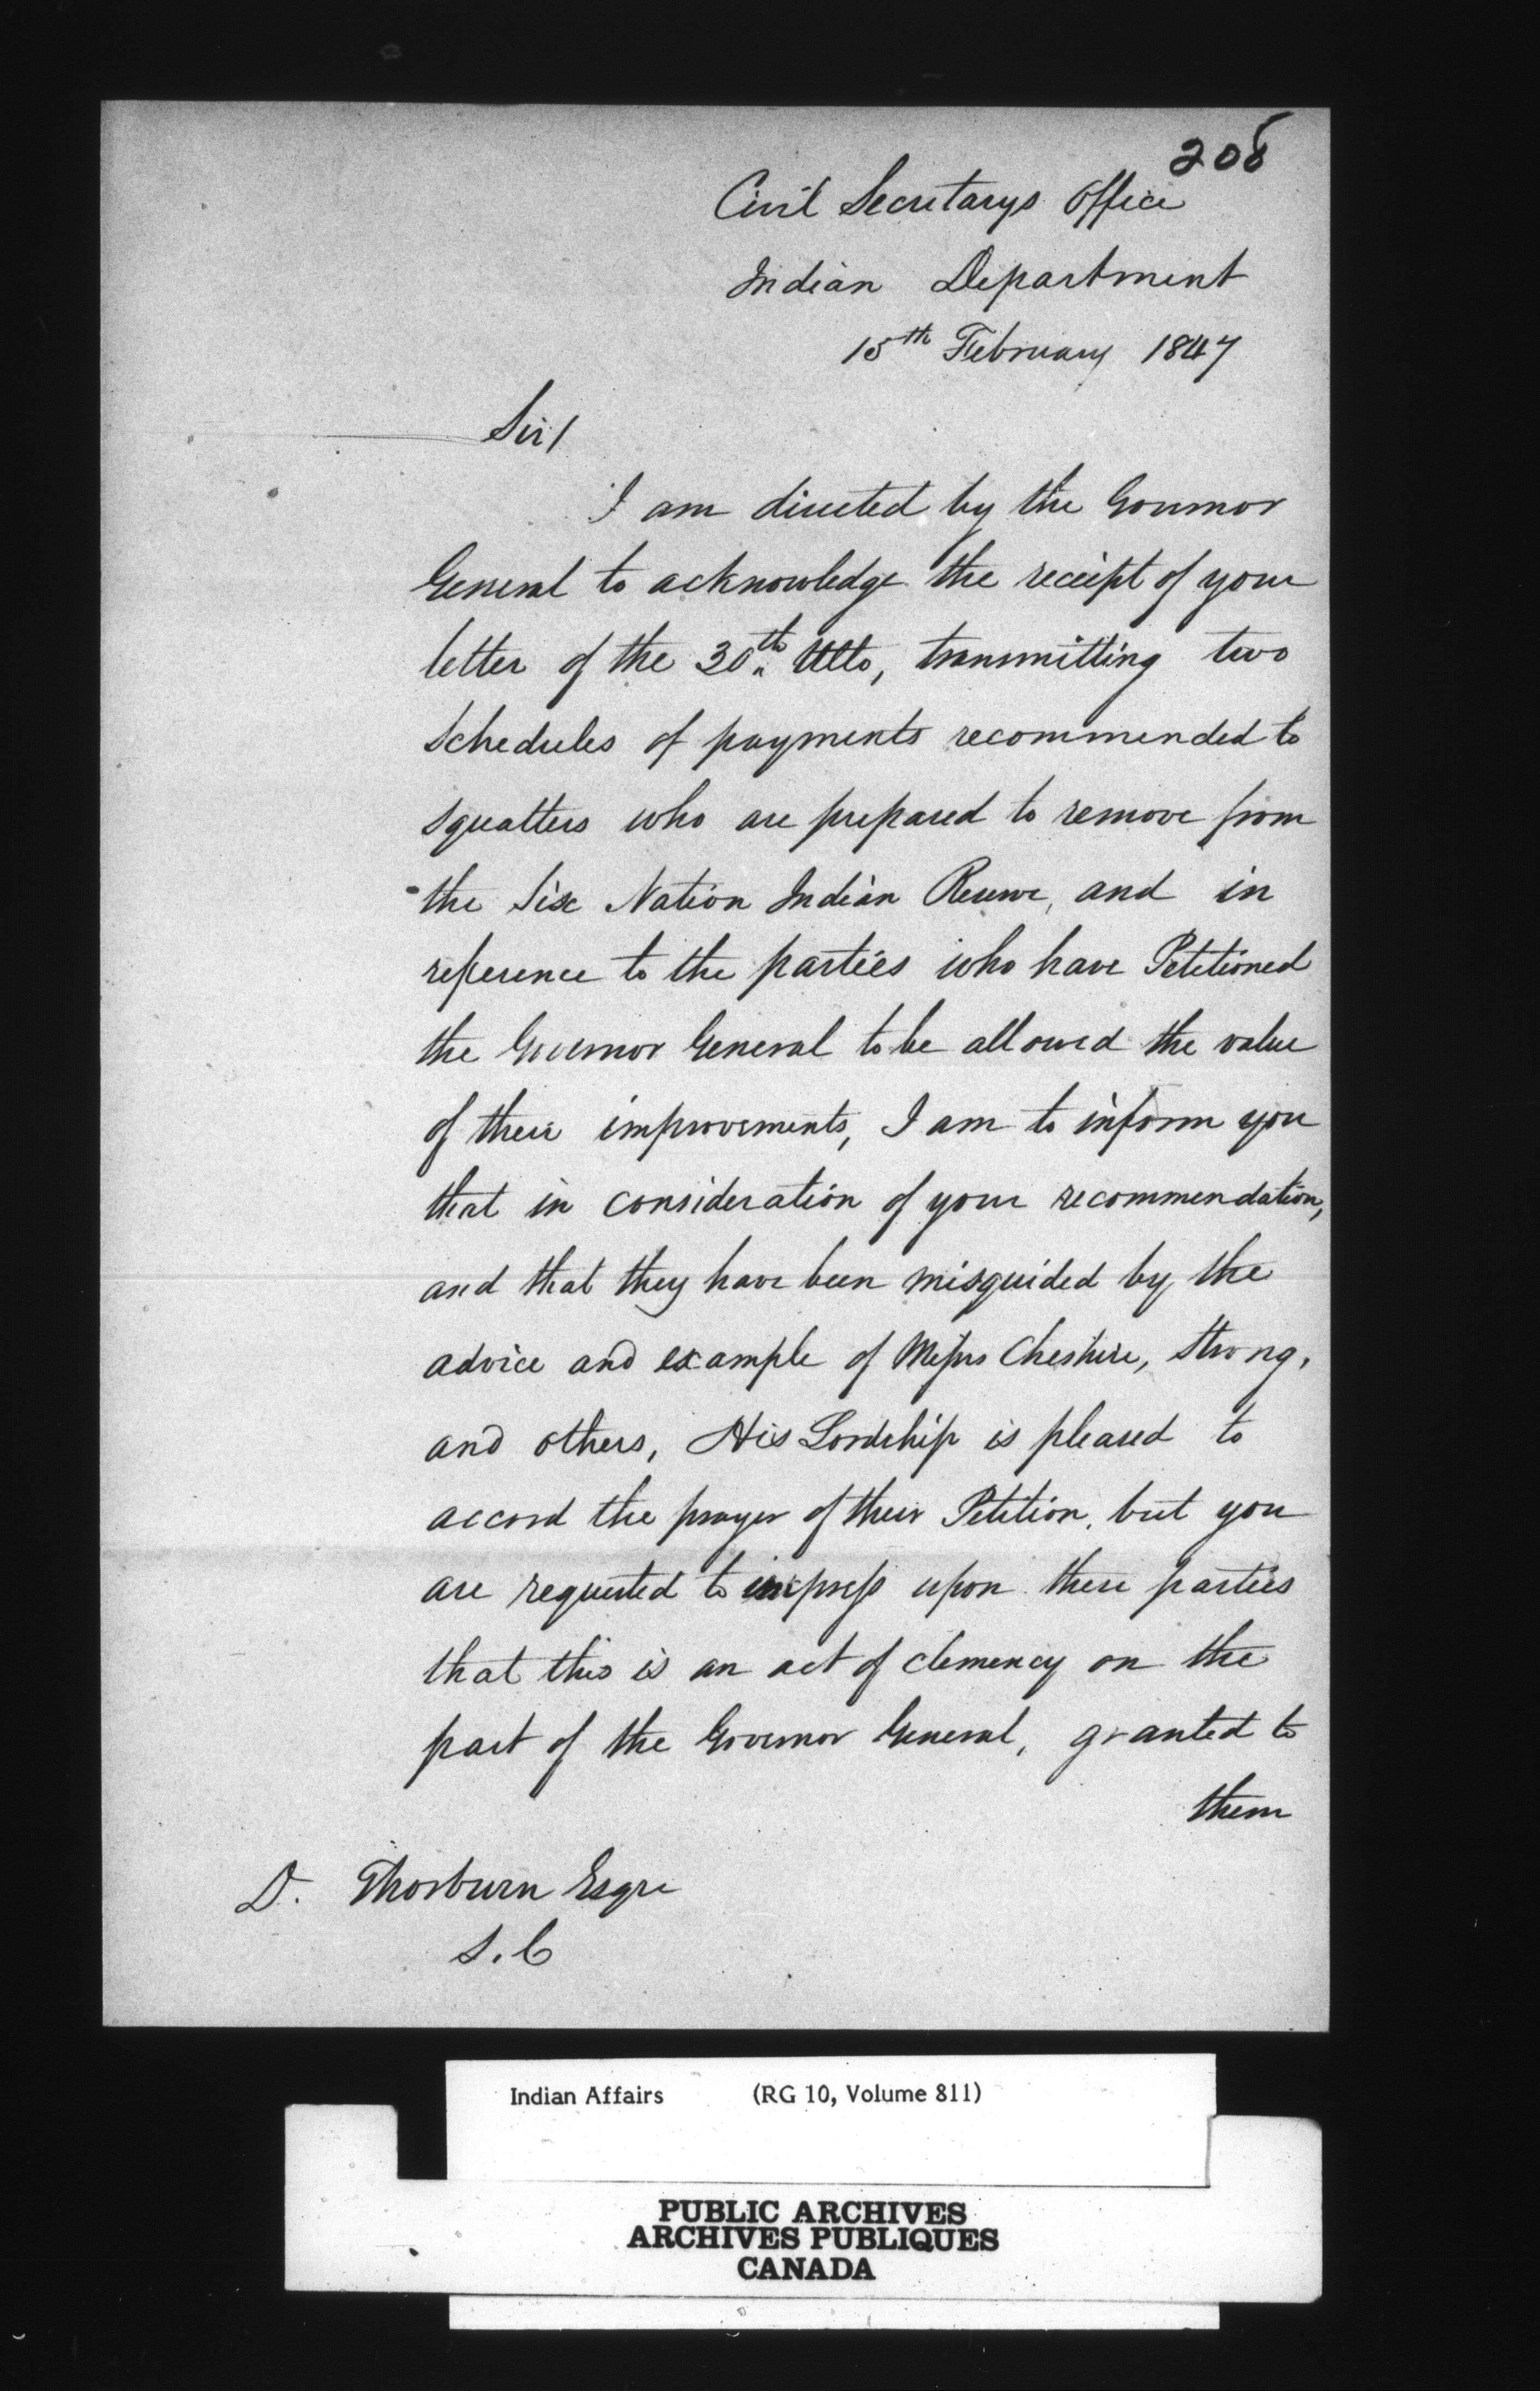 208
Civil Secretarys Office
Indian Department
15th February 1847
Sir/
I am directed by the Governor
General to acknowledge the receipt of your
letter of the 30th Ulto, transmitting two
Schedules of payments recommended to
squatters who are prepared to remove from
the Six Nation Indian Reserve, and in
reference to the parties who have Petitioned
the Governor General to be allowed the value
of their improvements, I am to inform you
that in consideration of your recommendation,
and that they have been misguided by the
advice and example of Messrs Cheshire, Strong,
and others, His Lordship is pleased to
accord the prayer of their Petition, but you
are requested to impress upon these parties
that this is an act of clemency on the
part of the Governor General, granted to
them
D. Thorburn Esqre
S.C
Indian Affairs (RG 10, Volume 811)
PUBLIC ARCHIVES
ARCHIVES PUBLIQUES
CANADA